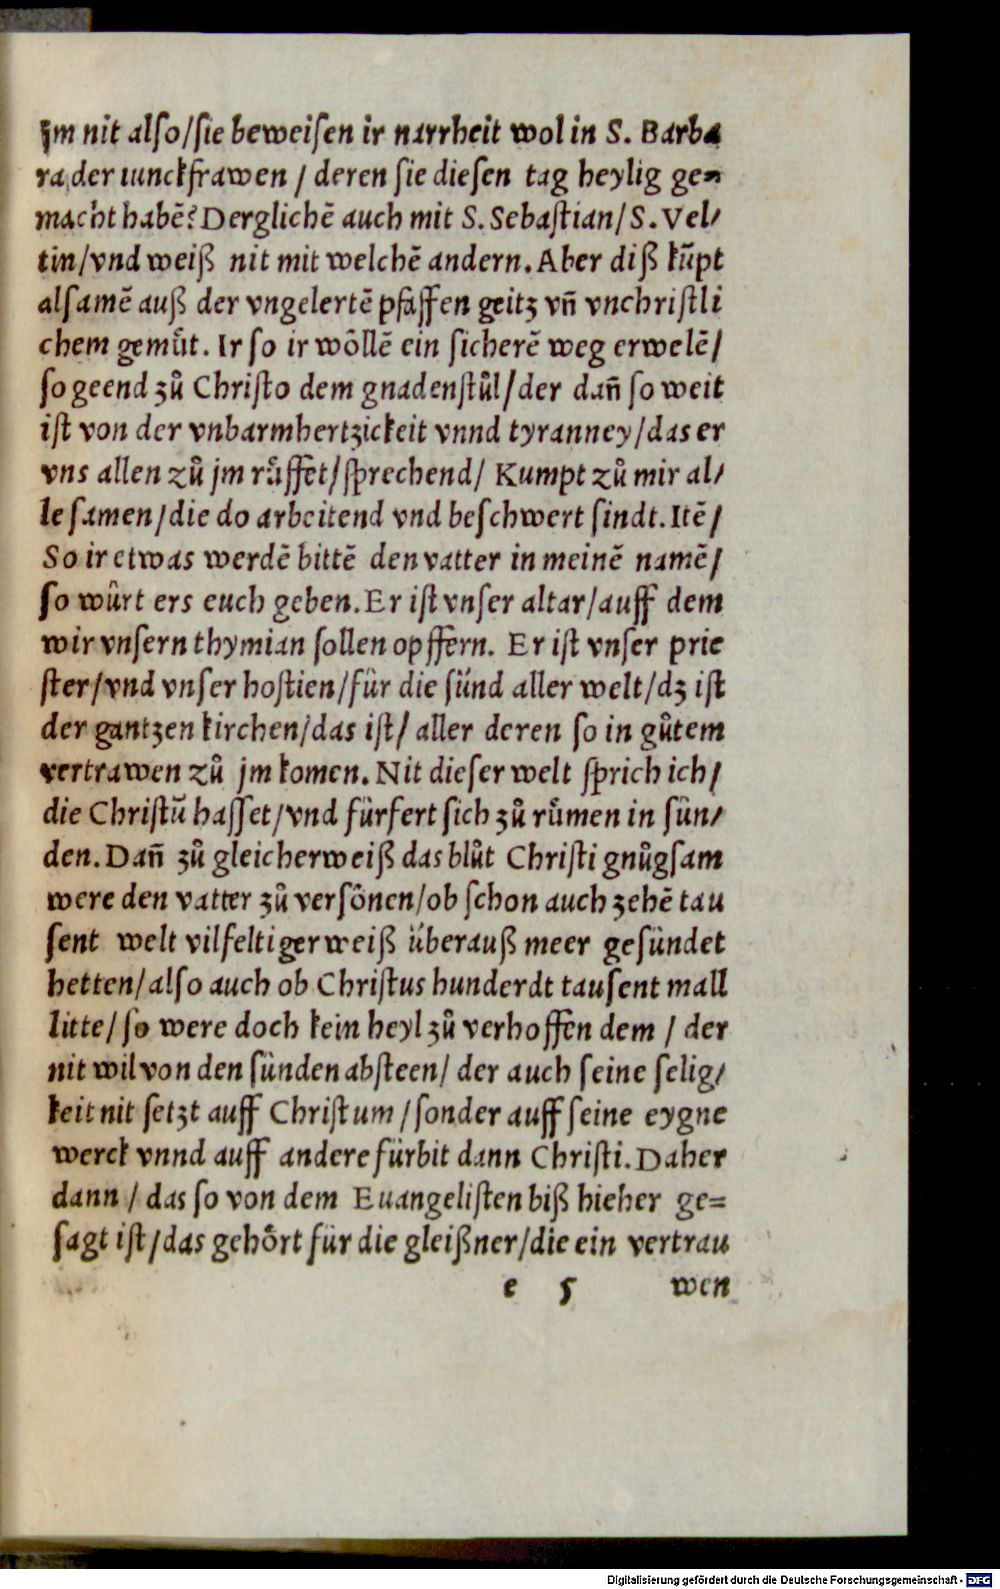 jm nit alſo/ſie beweiſen ir narrheit wol in S. Barba
ra der iunckfrawen / deren ſie dieſen tag heylig ge=
macht habē? Derglichē auch mit S. Sebaſtian/S. Vel/
tin/vnd weiß nit mit welchē andern. Aber diß kūpt
alſamē auß der vngelertē pfaffen geitz vn̄ vnchriſtli
chem gemuͤt. Ir ſo ir woͤllē ein ſicherē weg erwelē/
ſo geend zuͦ Chriſto dem gnadenſtuͦl/der dan̄ ſo weit
iſt von der vnbarmhertzickeit vnnd tyranney/das er
vns allen zuͦ jm ruͤffet/ſprechend/ Kumpt zuͦ mir al/
le ſamen/die do arbeitend vnd beſchwert ſindt. Itē/
So ir etwas werdē bittē den vatter in meinē namē/
ſo wuͤrt ers euch geben. Er iſt vnſer altar/auff dem
wir vnſern thymian ſollen opffern. Er iſt vnſer prie
ſter/vnd vnſer hoſtien/fuͤr die ſuͤnd aller welt/dz iſt
der gantzen kirchen/das iſt/ aller deren ſo in guͦtem
vertrawen zuͦ jm komen. Nit dieſer welt ſprich ich/
die Chriſtū haſſet/vnd fuͤrfert ſich zuͦ ruͤmen in ſuͤn/
den. Dan̄ zuͦ gleicherweiß das bluͦt Chriſti gnuͦgſam
were den vatter zuͦ verſoͤnen/ob ſchon auch zehē tau
ſent welt vilfeltigerweiß uͤberauß meer geſuͤndet
hetten/alſo auch ob Chriſtus hunderdt tauſent mall
litte/ſo were doch kein heyl zuͦ verhoffen dem / der
nit wil von den ſuͤnden abſteen/ der auch ſeine ſelig/
keit nit ſetzt auff Chriſtum/ſonder auff ſeine eygne
werck vnnd auff andere fuͤrbit dann Chriſti. Daher
dann / das ſo von dem Euangeliſten biß hieher ge=
ſagt iſt/das gehoͤrt fuͤr die gleißner/die ein vertrau
e 5 wen
Digitalisierung gefördert durch die Deutsche Forschungsgemeinschaft - DFG